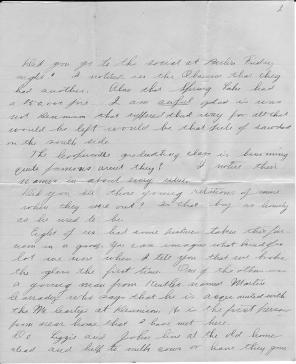 Did you go to the social at Berlin Friday
night? I noticed in the Observer that they
had another. Also that Spring Lake had
a $5000 fire. I am awful glad it was
not Kenmare that suffered that way for all that
would be left would be that pile of sawdust
on the south side.
The graduating class is becoming
quite famous arent they? I notice their
names in about every issue.
Did you see those young relations of mine
while they were out? Is that boy as homely
as he used to be.
Eight of us had some pictures taken this far
can in a group. You can imagine what kind of a
lot we were when I tell you that we broke
the glass the first time. One of the others was
a young man from named Martin
who says that he is acquainted with
the Mc at. He is the first person
from near home that I have met here.
Do Lizzie and John live at the old home
stead and help to milk cows or have they gone